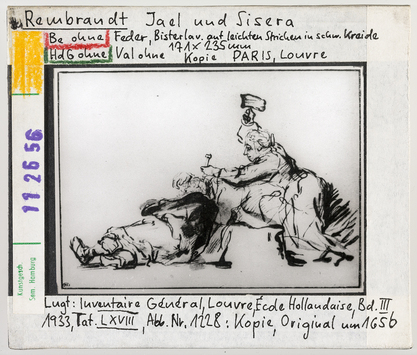 Rembrandt Jael und Sisera
Be ohne Feder, Bisterlav. auf leichten Strichen in schw. Kreide
171 x 235 mm
HdG ohne Val ohne Kopie PARIS, Louvre
112656
Kunstgesch.
Sem. Hamburg
Lugt: Inventaire Général, Louvre, École Hollandaise, Bd. III
1933, Taf. LXVIII, Abb. Nr. 1228: Kopie, Original um 1656